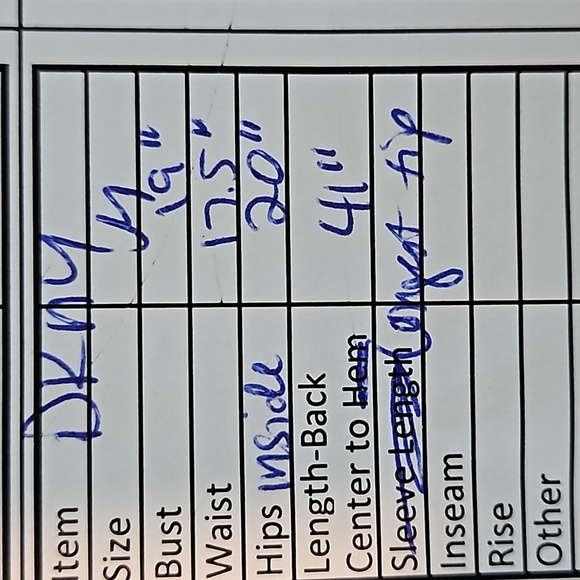 Item DKNY
Size M
Bust 19"
Waist 17.5"
Hips inside 20"
Length-Back
Center to Hem 41"
Sleeve Length Longest tip
Inseam
Rise
Other